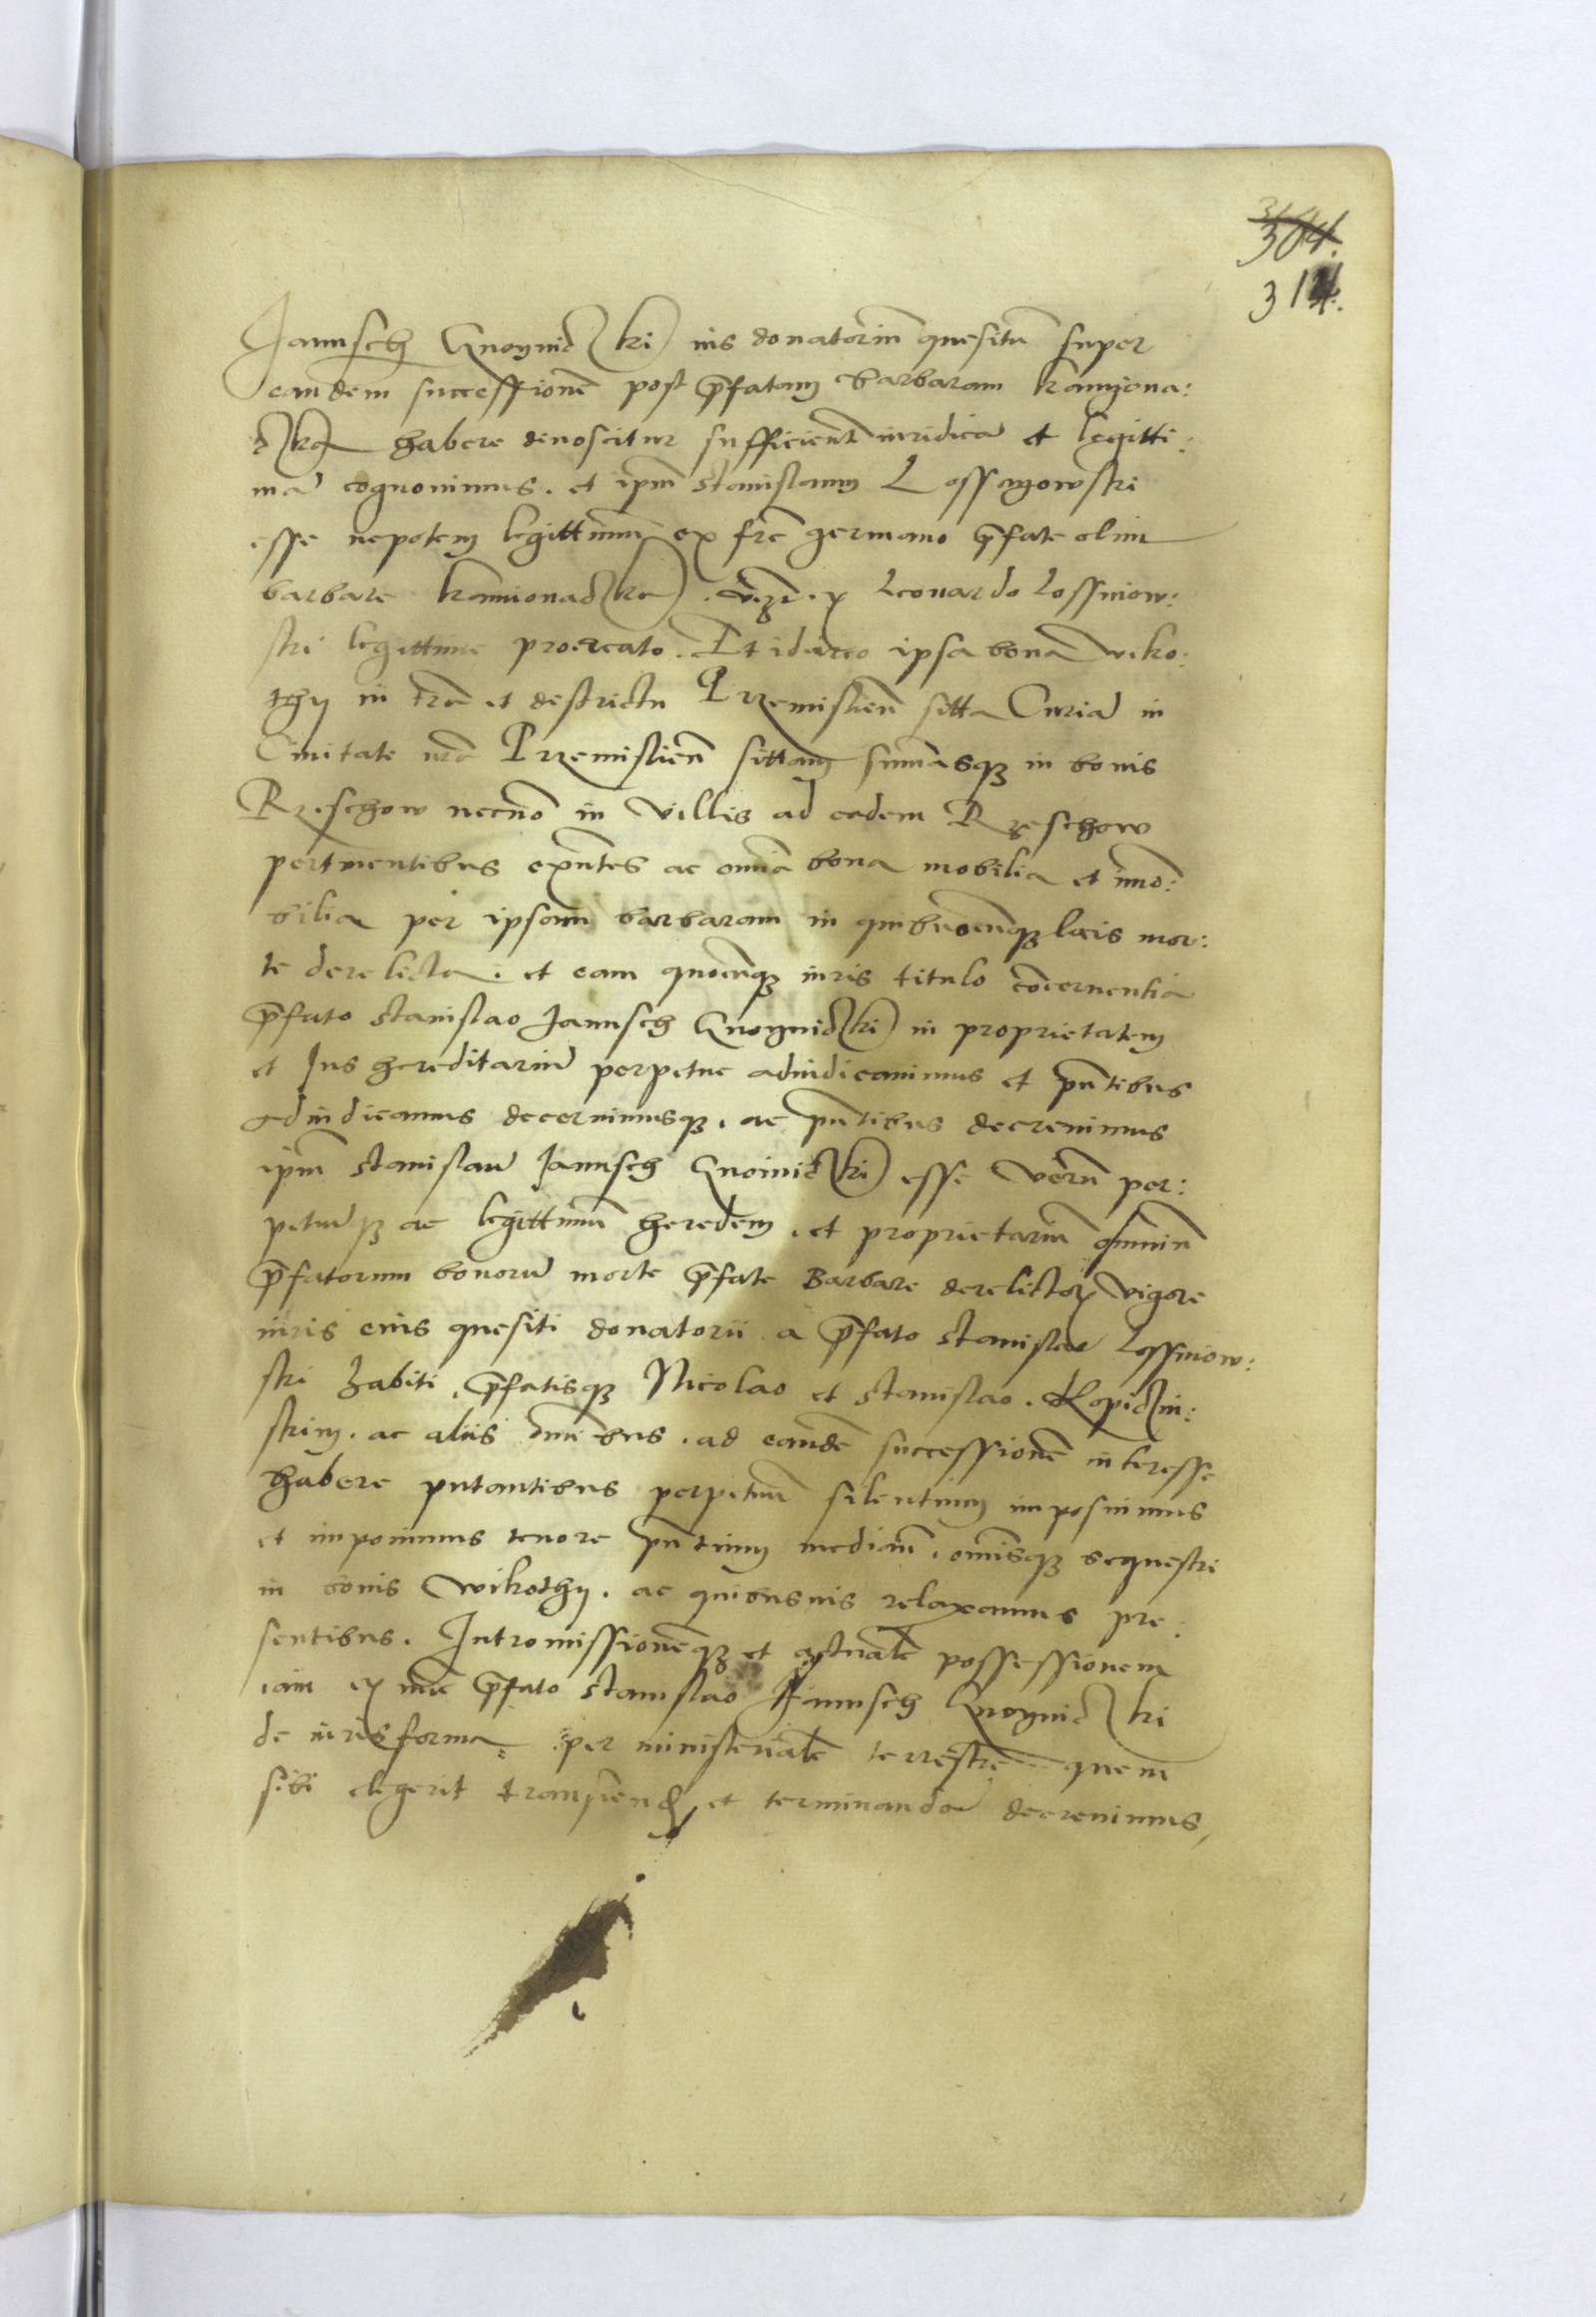 304.
314.
Janusch Gnoyniczki ius donatoriũ quesitũ super
eandem successionẽ post p̃fatam barbaram kamyona:
czką habere dinoscitur sufficient iuridica et legitti:
ma cognouimus. et ipm̃ stanislaum Lossnyowski
esse nepotem legittimũ ex frẽ germano p̃fate olim
barbare kamionaczka. ex Leonardo Lossniow:
ski legittime procreato. Et idcirco ipsa bona wiko:
thy in trã et districtu Przemislieñ sitta Curiã in
Ciuitate nrã Przemislieñ sittam sum̃asq₃ in bonis
Rzeschow necnõ in villis ad eadem Rzeschow
pertinentibus exñtes ac om̃ia bona mobilia et im̃o:
bilia per ipsam barbaram in quibuscunq₃ locis mor:
te derelicta. et eam quocunq₃ iuris titulo cõcernentia
p̃fato stanislao Janusch Gnoyniczki in proprietatem
et Jus hereditariũ perpetue adiudicauimus et pñtibus
adiudicamus decernimusq₃. ac pñtibus decreuimus
ipm̃ stanislaũ Janusch Gnoiniczki esse verũ per:
petuũq₃ ac legittimũ heredem. et proprietariũ omniũ
p̃fatorum bonorũ morte p̃fate Barbare derelictorꝝ vigore
iuris eius quesiti donatorii a p̃fato stanislao Lossniow:
ski habiti. p̃fatisq₃ Nicolao et stanislao. Kopiczin:
skim. ac aliis om̃ibus. ad eandẽ successionẽ interesse
habere putantibus perpetuũ silentium imposuimus
et imponimus tenore pñtium mediañ. om̃isq₃ sequestri
in bonis wikothy. ac quibusuis relaxamus pre:
sentibus. Intromissionẽq₃ et actualẽ possessionem
iam ex nũc p̃fato stanislao Janusch Gnoyniczki
de iuris forma per ministerialẽ terrestrẽ quem
sibi elegerit et terminanda decreuimus,